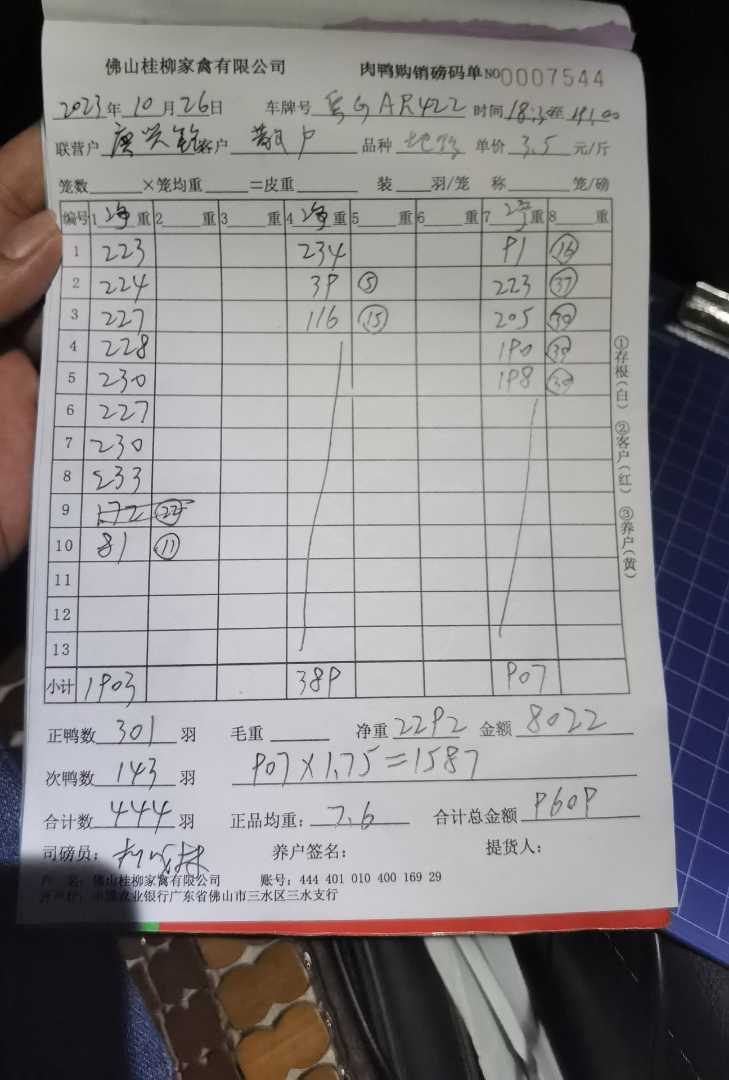 佛山桂柳家禽有限公司 肉鸭购销磅码单 NO 0007544
2023年10月26日 车牌号 AR422 时间 至
联营户 客户 散户 品种 单价 3.5 元/斤
笼数 ×笼均重 =皮重 装 羽/笼 称 笼/磅
编号 1 净 重 2 重 3 重 4 净 重 5 重 6 重 7 净 重 8 重
1 223 234 91 16
2 224 39 5 223 37
3 227 116 15 205 30
4 228 190 30
5 230 198 30
6 227
7 230
8 233
9 172 22
10 81 11
11
12
13
小计 1903 389 907
正鸭数 301 羽 毛重 净重 2292 金额 8022
次鸭数 143 羽 907×1.75=1587
合计数 444 羽 正品均重: 7.6 合计总金额 9609
司磅员: 养户签名: 提货人:
户 名: 佛山桂柳家禽有限公司 账号: 444 401 010 400 169 29
开户行: 中国农业银行广东省佛山市三水区三水支行
①存根(白) ②客户(红) ③养户(黄)